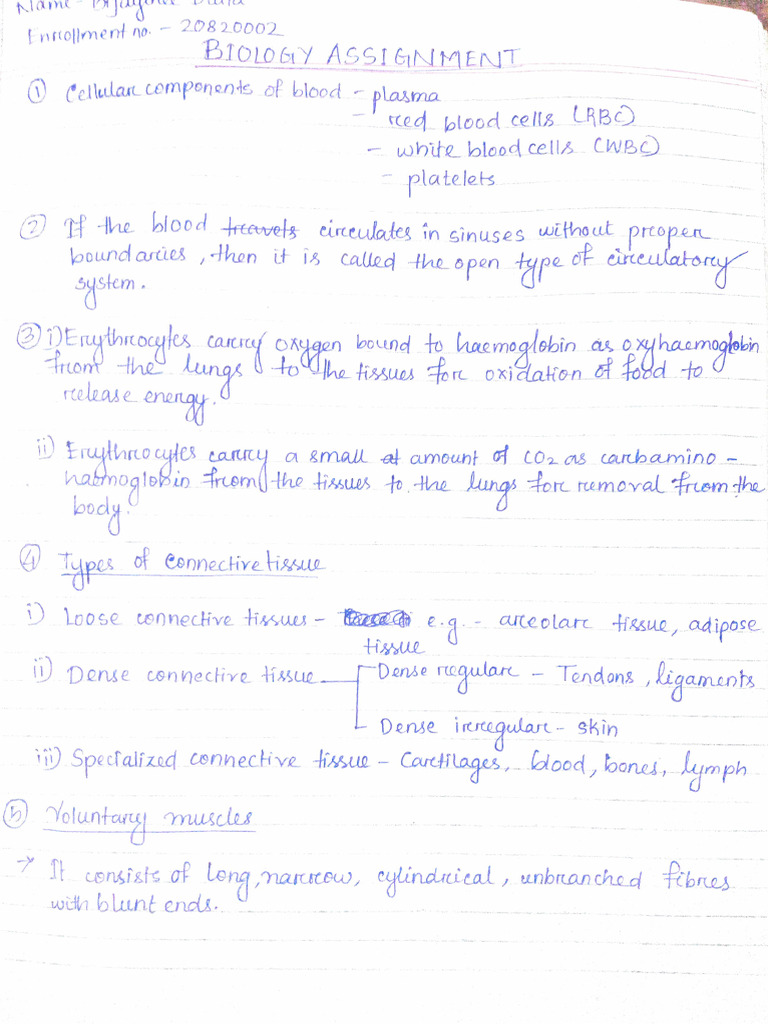 Name -
Enrollment no. - 20820002
BIOLOGY ASSIGNMENT
① Cellular components of blood - plasma
- red blood cells (RBC)
- white blood cells (WBC)
- platelets
② If the blood travels circulates in sinuses without proper
boundaries, then it is called the open type of circulatory
system.
③ i) Erythrocytes carry oxygen bound to haemoglobin as oxyhaemoglobin
from the lungs to the tissues for oxidation of food to
release energy.
ii) Erythrocytes carry a small at amount of CO2 as carbamino -
haemoglobin from the tissues to the lungs for removal from the
body.
④ Types of connective tissue
i) Loose connective tissues - e.g. - areolar tissue, adipose
tissue
ii) Dense connective tissue - Dense regular - Tendons, ligaments
Dense irregular - skin
iii) Specialized connective tissue - Cartilages, blood, bones, lymph
⑤ Voluntary muscles
→ It consists of long, narrow, cylindrical, unbranched fibres
with blunt ends.